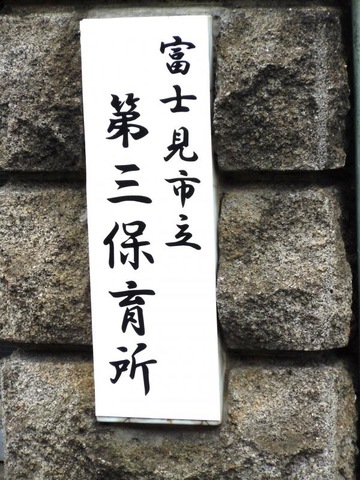 富士見市立
第三保育所